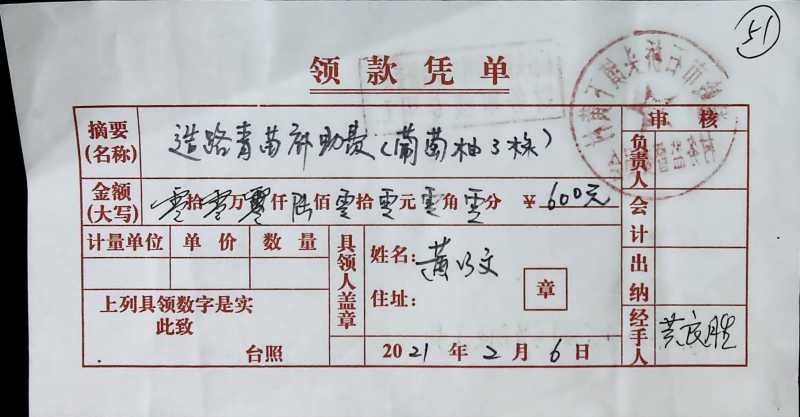 51
领款凭单
摘要(名称) 造路青苗补助费(葡萄柚3株)
审核
金额(大写) 零拾零万零仟陆佰零拾零元零角零分 ¥600元
负责人
会计
计量单位 单价 数量
具领人盖章
姓名:黄
住址:
章
出纳
上列具领数字是实
此致
台照
2021年2月6日
经手人